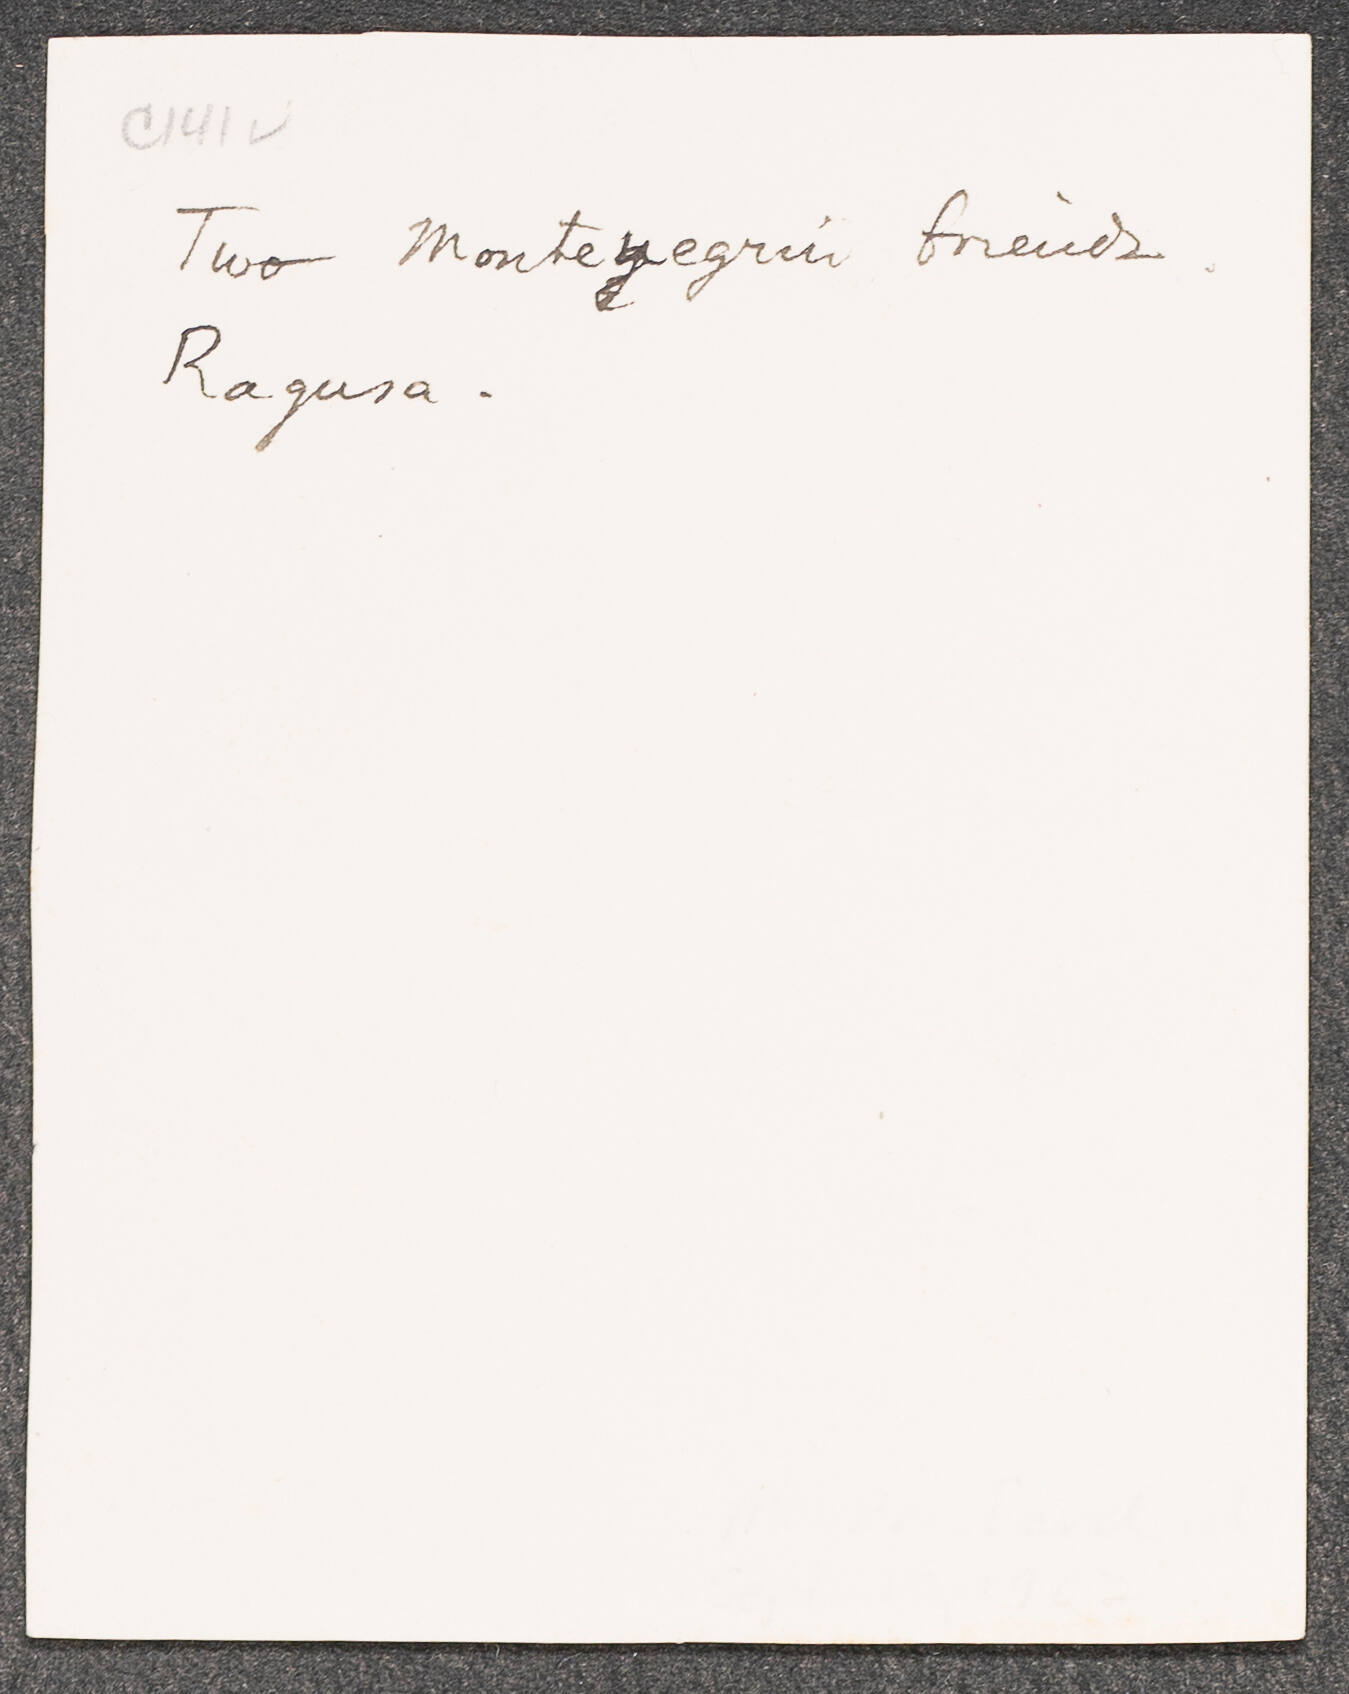 C141v
Two Montenegrin friends.
Ragusa.